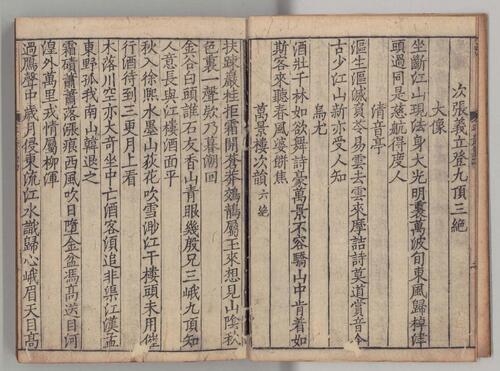 次張義立登九頂三絶
大像
坐斷江山現法身大光明裏萬波旬東風歸棹
頭過同是慈航得度人
清音亭
漚生漚滅負 易雲去雲來摩詰詩莫道賞音今
古少江山新亦受人知
烏尤
酒壯千林如欲舞詩豪萬景不容驕山中肯着如
斯客來聽春風婆餅焦
萬景樓次韻 六絶
扶疎巖桂拒霜開蒼莽 屬玉來想見山陰秋
色裏一聲欸乃暮潮回
金谷白頭誰石友香山青眼幾殷兄三峨九頂知
人意長與江樓酒面平
秋入徐熙水墨山荻花吹雪渺江干樓頭未用催
行酒待到三更月上看
木落川空亦大奇坐中亡酒客須追非渠江漢孟
東野孤我南山韓退之
霜磧蕭蕭落漲痕西風吹日墮金盆馮髙送目河
湟外萬里戎情屬柳渾
過鴈聲中歲月侵東流江水識歸心峨眉天目髙